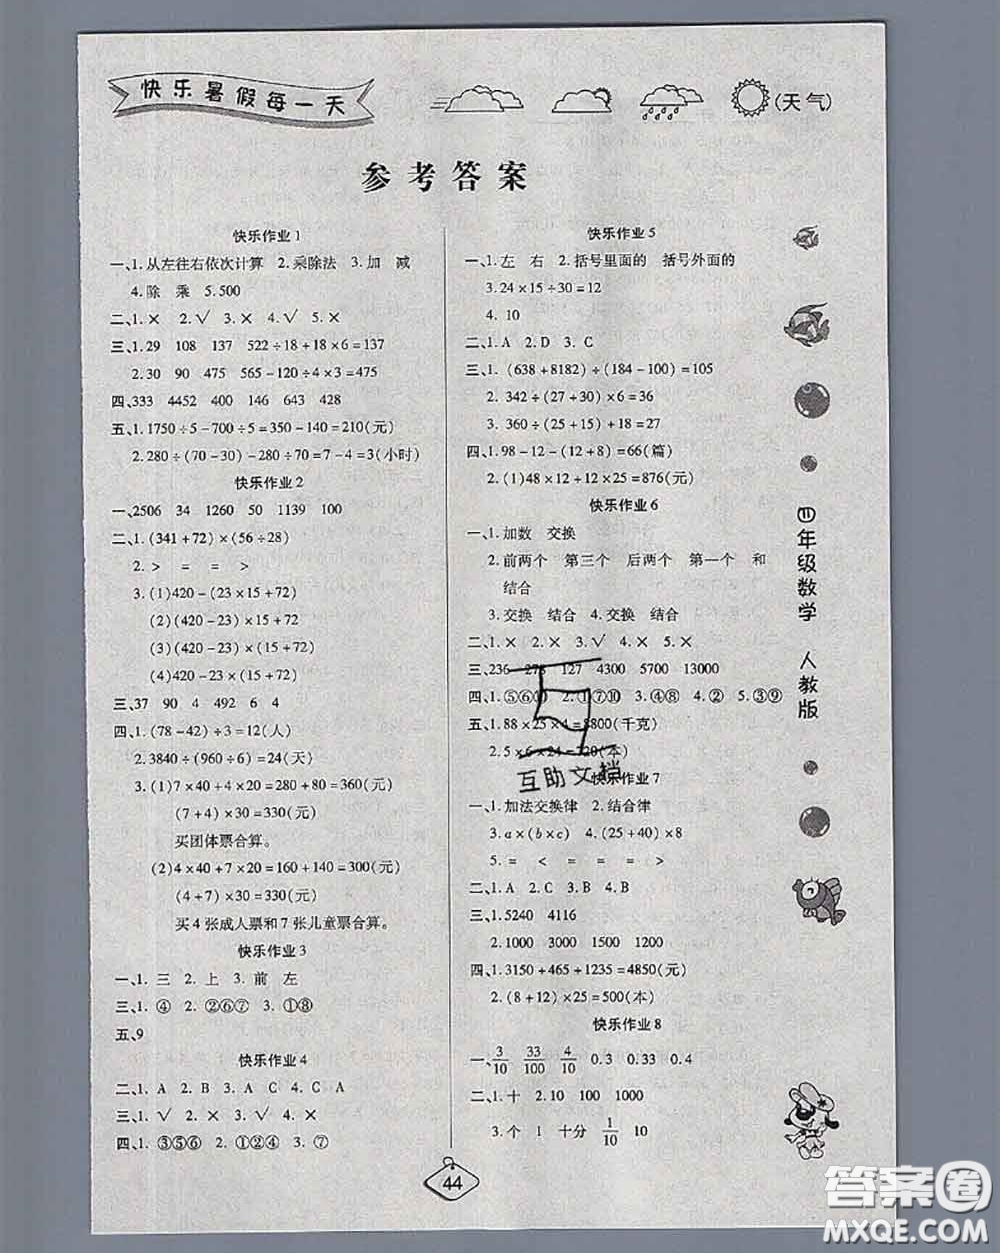 快乐暑假每一天
(天气)
参考答案
快乐作业1
一、1.从左往右依次计算 2.乘除法 3.加 减
4.除 乘 5.500
二、1.× 2.√ 3.× 4.√ 5.×
三、1.29 108 137 522÷18+18×6=137
2.30 90 475 565-120÷4×3=475
四、333 4452 400 146 643 428
五、1.1750÷5-700÷5=350-140=210(元)
2.280÷(70-30)-280÷70=7-4=3(小时)
快乐作业2
一、2506 34 1260 50 1139 100
二、1.(341+72)×(56÷28)
2.> = = >
3.(1)420-(23×15+72)
(2)(420-23)×15+72
(3)(420-23)×(15+72)
(4)420-23×(15+72)
三、37 90 4 492 6 4
四、1.(78-42)÷3=12(人)
2.3840÷(960÷6)=24(天)
3.(1)7×40+4×20=280+80=360(元)
(7+4)×30=330(元)
买团体票合算。
(2)4×40+7×20=160+140=300(元)
(4+7)×30=330(元)
买4张成人票和7张儿童票合算。
快乐作业3
一、1.三 2.上 3.前 左
三、1.④ 2.②⑥⑦ 3.①⑧
五、9
快乐作业4
二、1.A 2.B 3.A C 4.C A
三、1.√ 2.× 3.√ 4.×
四、1.③⑤⑥ 2.①②④ 3.⑦
快乐作业5
一、1.左 右 2.括号里面的 括号外面的
3.24×15÷30=12
4.10
二、1.A 2.D 3.C
三、1.(638+8182)÷(184-100)=105
2.342÷(27+30)×6=36
3.360÷(25+15)+18=27
四、1.98-12-(12+8)=66(篇)
2.(1)48×12+12×25=876(元)
快乐作业6
一、1.加数 交换
2.前两个 第三个 后两个 第一个 和
结合
3.交换 结合 4.交换 结合
二、1.× 2.× 3.√ 4.× 5.×
三、236 278 127 4300 5700 13000
四、1.⑤⑥⑩ 2.①⑦⑩ 3.④⑧ 4.② 5.③⑨
五、1.88×25×4=8800(千克)
2.5×6×24=720(本)
互助文档
快乐作业7
一、1.加法交换律 2.结合律
3.a×(b×c) 4.(25+40)×8
5.= < = = >
二、1.A 2.C 3.B 4.B
三、1.5240 4116
2.1000 3000 1500 1200
四、1.3150+465+1235=4850(元)
2.(8+12)×25=500(本)
快乐作业8
一、3/10 33/100 4/10 0.3 0.33 0.4
二、1.十 2.10 100 1000
3.个 1 十分 1/10 10
四年级数学 人教版
44
答案圈
MXQE.COM